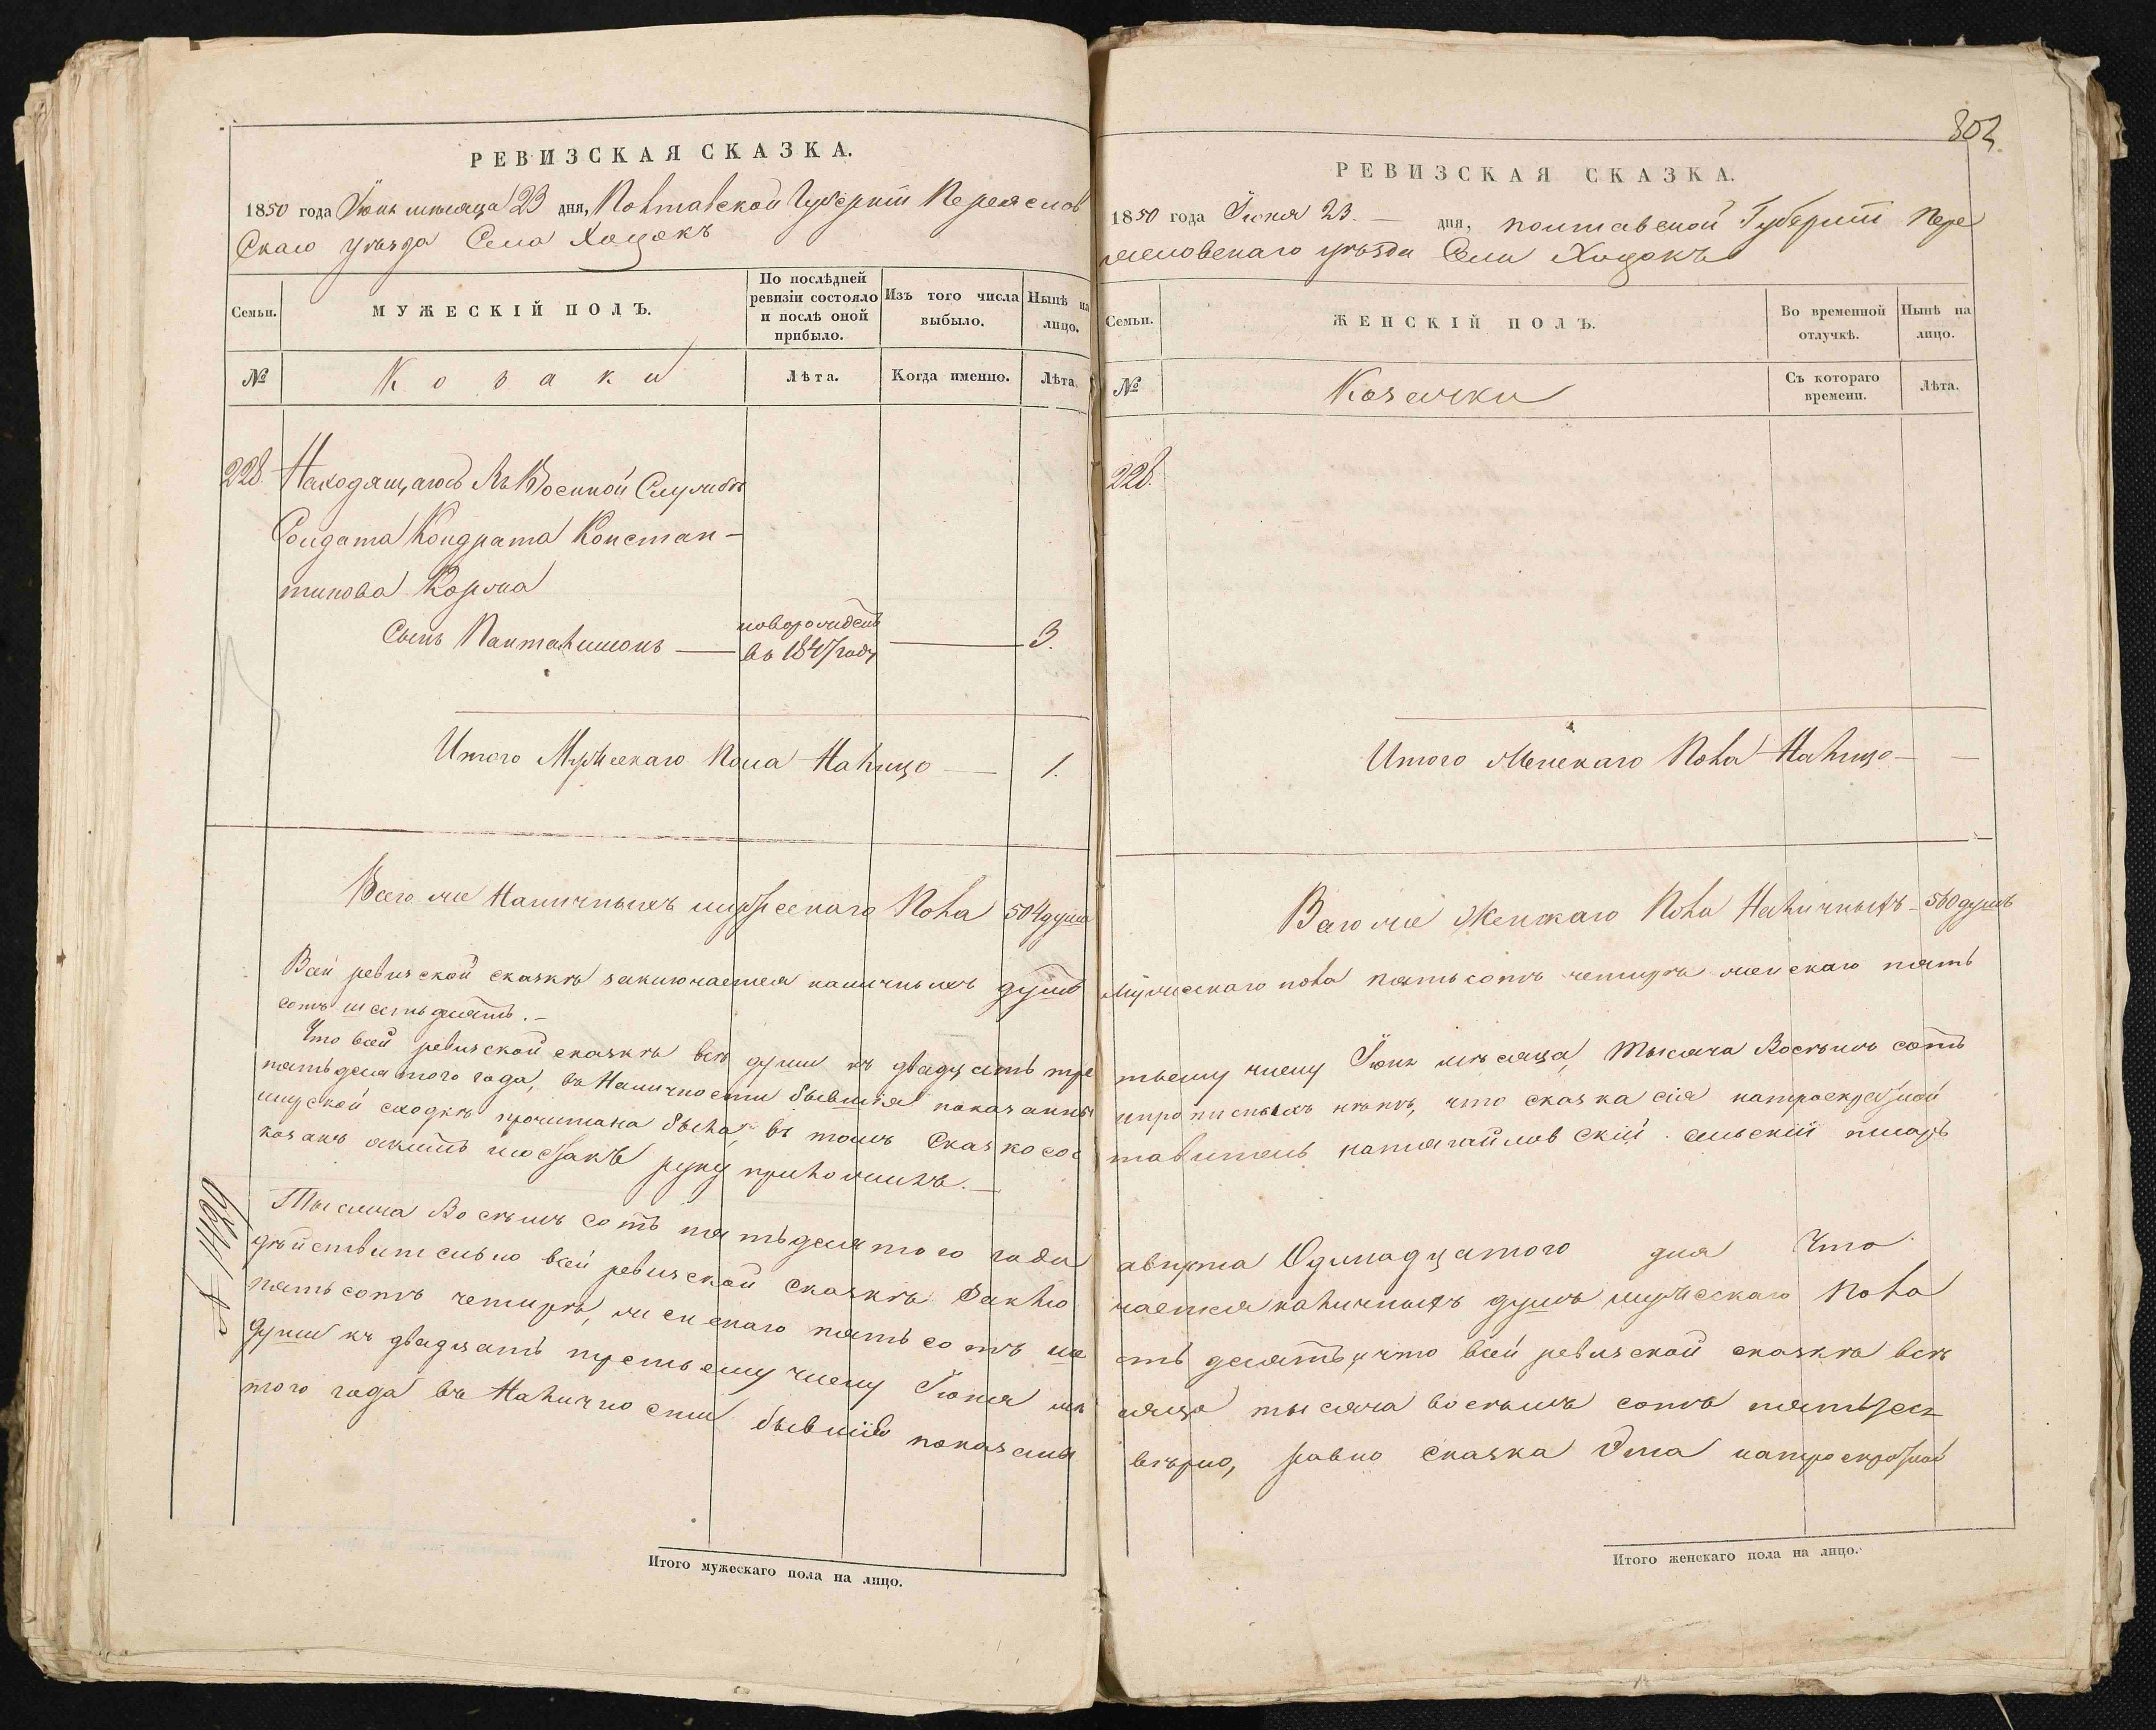 РЕВИЗСКАЯ СКАЗКА.
1850 года Июнь месяца 23 дня, Полтавской Губернии Переяслов
скаго уѣзда Села Хоцокъ
Семьи.
МУЖЕСКІЙ ПОЛЪ.
По послѣдней ревизіи состояло и послѣ оной прибыло.
Изъ того числа выбыло.
Нынѣ на лицо.
№
Козаки
Лѣта.
Когда именно.
Лѣта.
228. Находящагось въ Военной Службѣ
Солдата Кондрата Констан-
тинова
Сынъ Пантелимонъ — новорожденъ въ 1847 году — 3.
Итого Мужескаго Пола Налицо — 1.
Всего же Наличныхъ мужескаго Пола 504 душъ
Всей ревизской сказкѣ заключается наличныхъ душъ
сотъ шестьдесятъ. —
Что всей ревизской сказкѣ всѣ души къ двадцать тре
пятьдесятого года, въ Наличности бывшія показаны
сходкѣ прочитана была, въ томъ Сказкосос
козакъ руку приложилъ. —
Тысяча Восемъ сотъ пятьдесятого года
дѣйствительно всей ревизской сказкѣ Заклю
пятьсотъ четыре, женскаго пятьсотъ ше
Души къ двадцать третьему числу Іюня мѣ
того года въ Наличности бывшіе показаны
Итого мужескаго пола на лицо.
802
РЕВИЗСКАЯ СКАЗКА.
1850 года Іюня 23. — дня, полтавской Губерніи Пере
яеловскаго уѣзда Села Хоцокъ
Семьи.
ЖЕНСКІЙ ПОЛЪ.
Во временной отлучкѣ.
Нынѣ на лицо.
№
Козачки
Съ котораго времени.
Лѣта.
228.
Итого Женскаго Пола Налицо — —
Всего же Женскаго Пола Наличныхъ — 560 душъ
Мужескаго пола пятьсотъ четыре женскаго пять
тьему числу Іюнь мѣсяца, тысяча Восемъ сотъ
и прописныхъ нѣтъ, что сказка сія на
тавитель сельскій писарь
августа Одинадцатого дня Что
чается наличныхъ душъ мужескаго Пола
сть десятъ, и что всей ревизской сказкѣ всѣ
сяца тысяча восемъ сотъ пятьдеся
вѣрно, равно сказка Эта на
Итого женскаго пола на лицо.